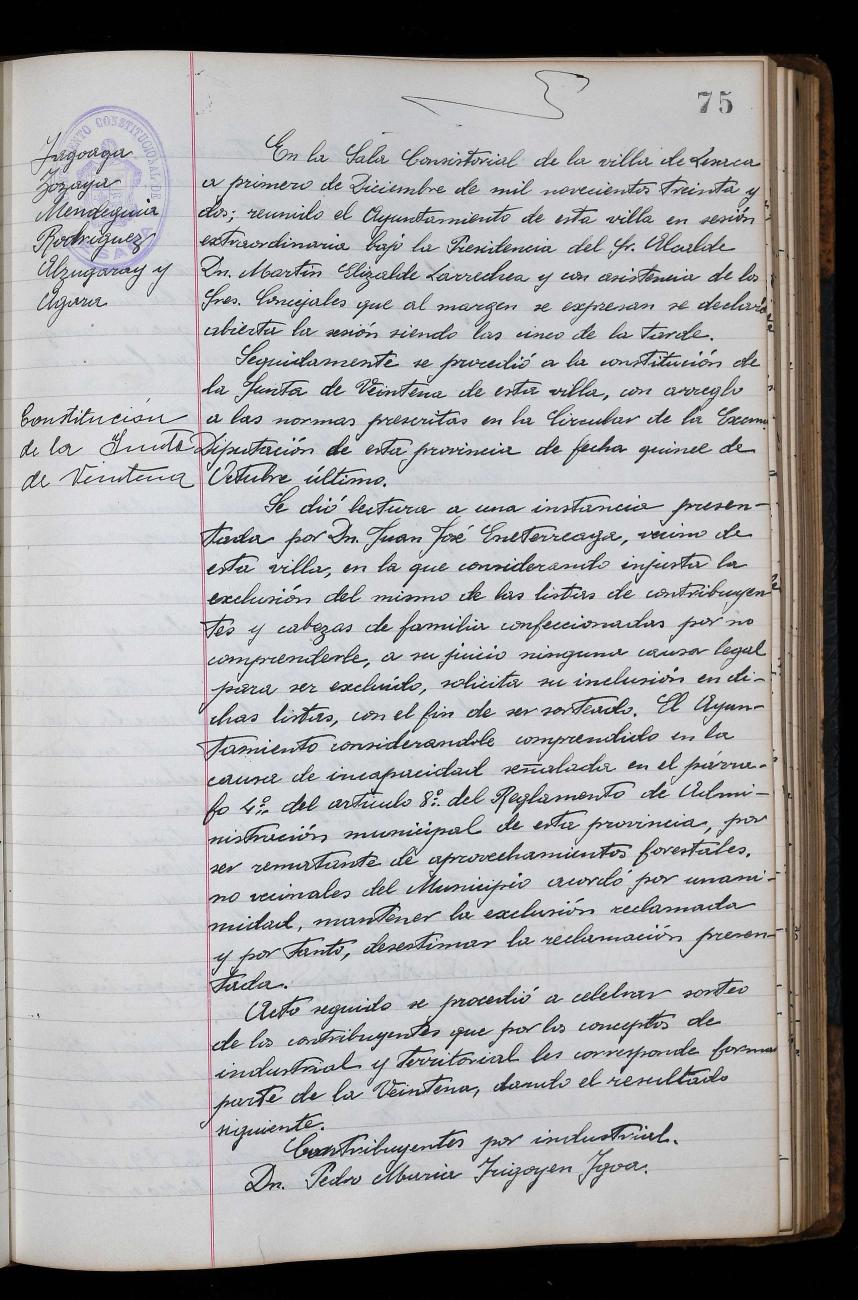 75
Jagoaga
Zozaya
Mendeguia
Rodriguez
Alzugaray y
Agara
En la Sala Consistorial de la villa de Lesaca
a primero de Diciembre de mil novecientos treinta y
dos; reunido el Ayuntamiento de esta villa en sesión
extraordinaria bajo la Presidencia del Sr. Alcalde
Dn. Martin Elizalde Larrechea y con asistencia de los
Sres. Concejales que al margen se expresan se declaró
abierta la sesión siendo las cinco de la tarde.
Constitución
de la Junta
de Veintena
Seguidamente se procedió a la constitución de
la Junta de Veintena de esta villa, con arreglo
a las normas prescritas en la Circular de la Excma
Diputación de esta provincia de fecha quince de
Octubre último.
Se dió lectura a una instancia presen-
tada por Dn. Juan José Eneterreaga, vecino de
esta villa, en la que considerando injusta la
exclusión del mismo de las listas de contribuyen-
tes y cabezas de familia confeccionadas por no
comprenderle, a su juicio ninguna causa legal
para ser excluido, solicita su inclusión en di-
chas listas, con el fin de ser sorteado. El Ayun-
tamiento considerandole comprendido en la
causa de incapacidad señalada en el párra-
fo 4º del artículo 8º del Reglamento de Admi-
nistración municipal de esta provincia, por
ser rematante de aprovechamientos forestales,
no vecinales del Municipio acordó por unani-
midad, mantener la exclusión reclamada
y por tanto, desestimar la reclamación presen-
tada.
Acto seguido se procedió a celebrar sorteo
de los contribuyentes que por los conceptos de
industrial y territorial les corresponde formar
parte de la Veintena, dando el resultado
siguiente.
Contribuyentes por industrial.
Dn. Pedro Maria Irigoyen Igoa.